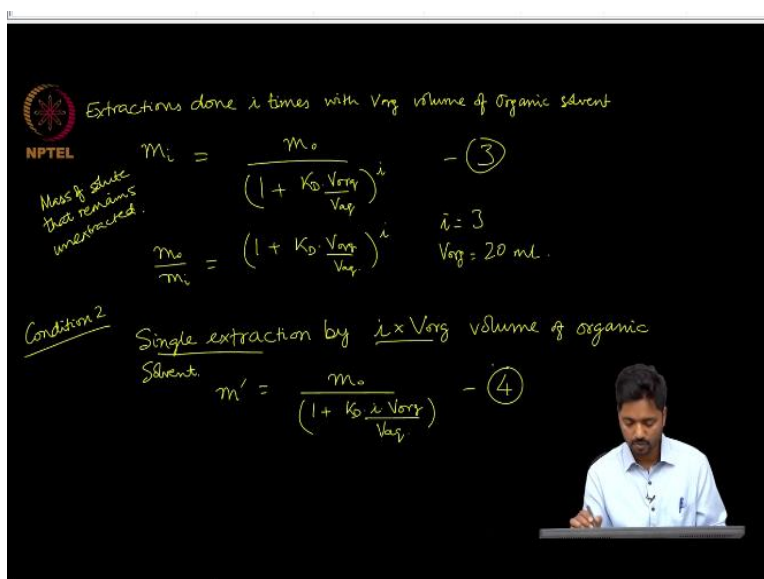 Extractions done i times with Vorg volume of Organic solvent
NPTEL
mi = mo / (1 + KD. Vorg/Vaq)^i - ③
Mass of solute
that remains
unextracted.
mo/mi = (1 + KD. Vorg/Vaq.)^i
i = 3
Vorg = 20 ml.
Condition 2
Single extraction by i x Vorg volume of organic
Solvent.
m' = mo / (1 + KD. i Vorg/Vaq.) - ④